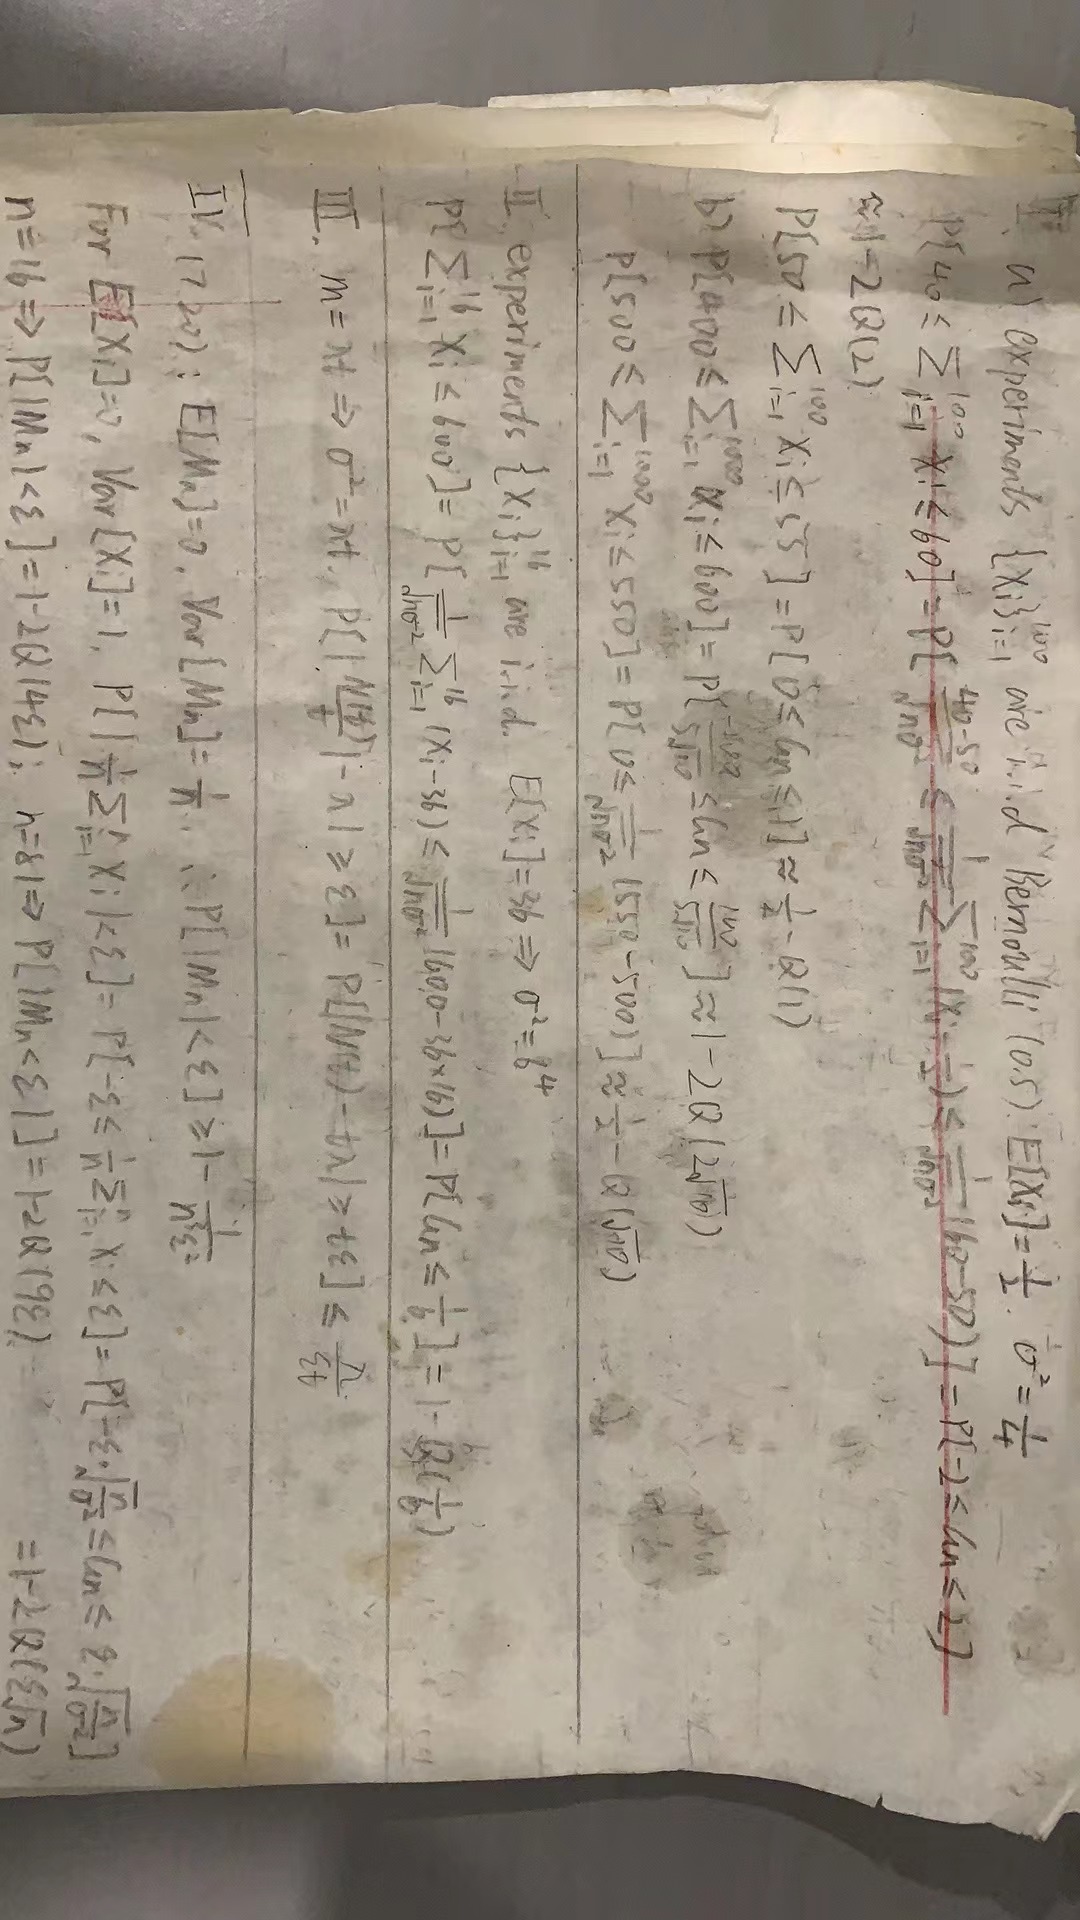 I. a) experiments {Xi}_{i=1}^{100} are i.i.d Bernoulli (0.5). E[Xi]=1/2. σ²=1/4
P[40 ≤ ∑_{i=1}^{100} Xi ≤ 60] = P[(40-50)/√(nσ²) ≤ 1/√(nσ²) ∑_{i=1}^{100} (Xi-1/2) ≤ 1/√(nσ²) (60-50)] = P[-2 ≤ Gn ≤ 2]
≈ 1-2Q(2)
P[50 ≤ ∑_{i=1}^{100} Xi ≤ 55] = P[0 ≤ Gn ≤ 1] ≈ 1/2 - Q(1)
b) P[400 ≤ ∑_{i=1}^{1000} Xi ≤ 600] = P[-100/(5√10) ≤ Gn ≤ 100/(5√10)] ≈ 1-2Q(2√10)
P[500 ≤ ∑_{i=1}^{1000} Xi ≤ 550] = P[0 ≤ 1/√(nσ²) (550-500)] ≈ 1/2 - Q(√10)
II. experiments {Xi}_{i=1}^{16} are i.i.d. E[Xi]=36 ⇒ σ²=6⁴
P[∑_{i=1}^{16} Xi ≤ 600] = P[1/√(nσ²) ∑_{i=1}^{16} (Xi-36) ≤ 1/√(nσ²) (600-36×16)] = P[Gn ≤ 1/6] = 1-Q(1/6)
III. m=λt ⇒ σ²=λt. P[|N(t)/t|-λ| ≥ ε] = P[|N(t)-tλ| ≥ tε] ≤ λ/(εt)
IV. (7.20): E[Mn]=0, Var[Mn]=1/n. ∴ P[|Mn|<ε] ≥ 1-1/(n³ε²)
For E[Xi]=0, Var[Xi]=1, P[|1/n ∑_{i=1}^{n} Xi|<ε] = P[-ε ≤ 1/n ∑_{i=1}^{n} Xi ≤ ε] = P[-ε·√(n/σ²) ≤ Gn ≤ ε·√(n/σ²)]
n=16 ⇒ P[|Mn|<ε] = 1-2Q(4ε); n=81 ⇒ P[|Mn<ε|] = 1-2Q(9ε) =1-2Q(ε√n)